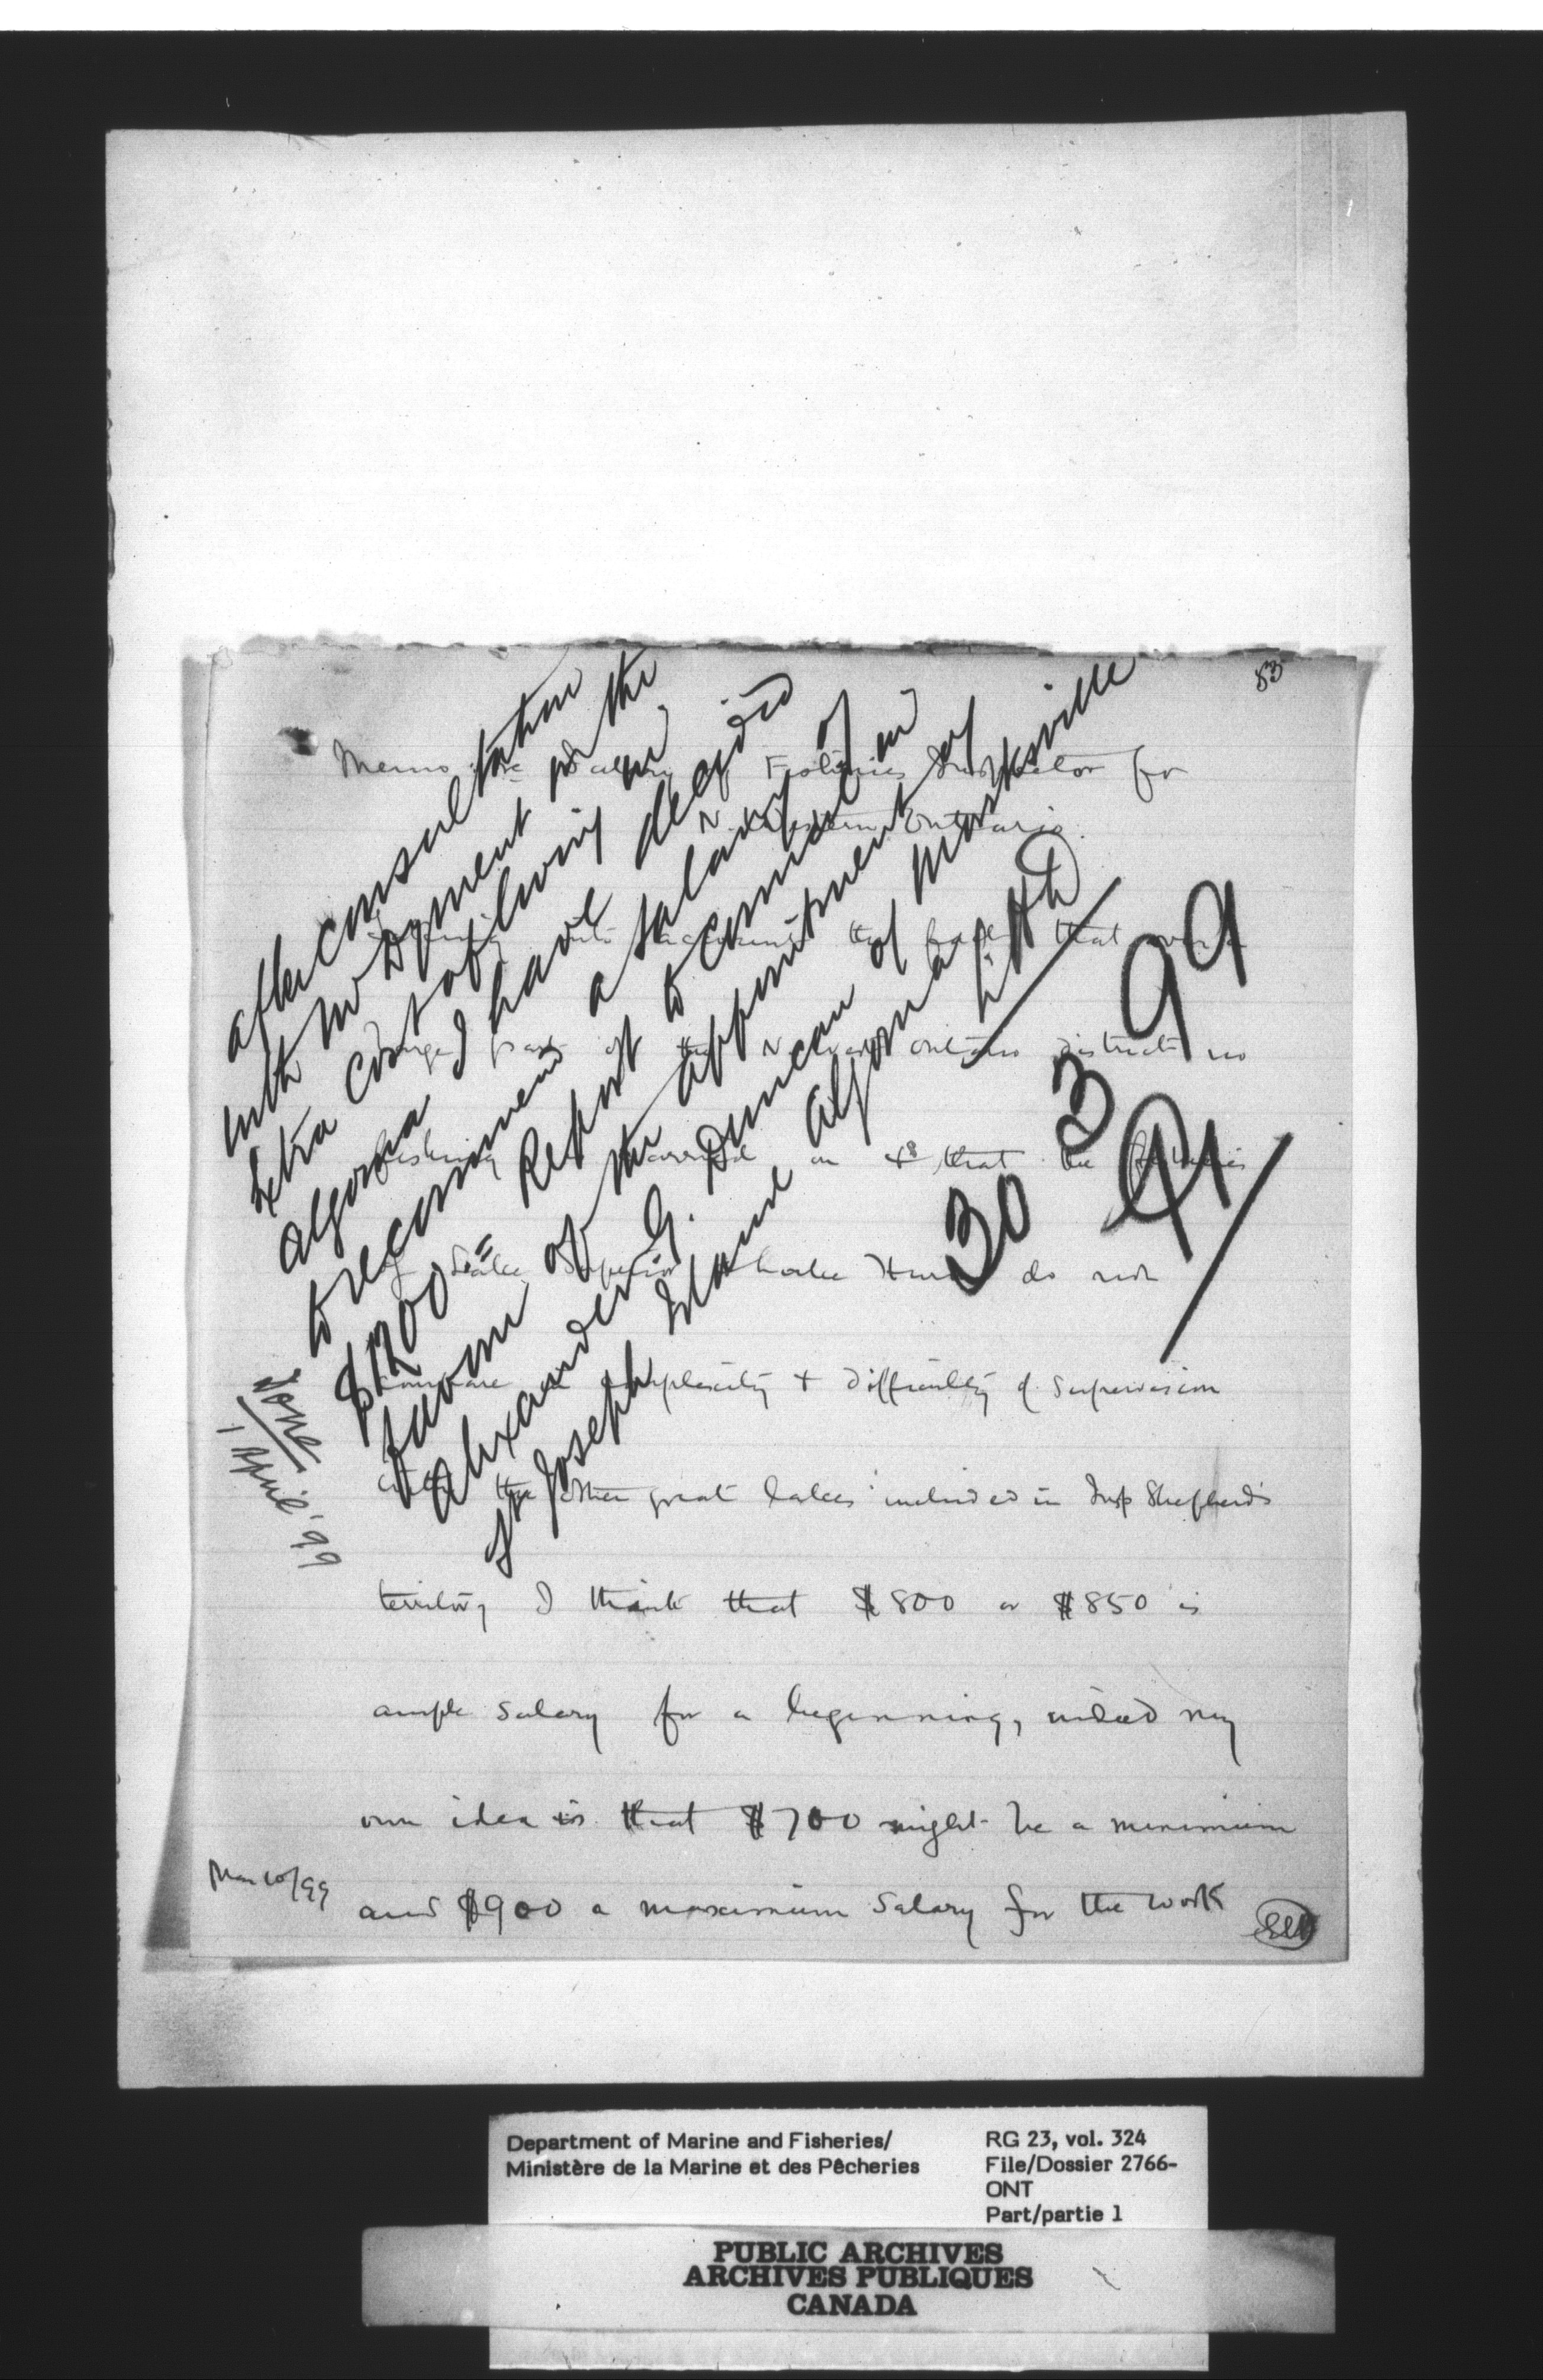 83
Memo re Salary of Fisheries Inspector for
N. Western Ontario.
Taking into account the fact that over a
large part of the N West Ontario district no
fishing is carried on & that the fisheries
of Lake Superior & Lake Huron do not
compare in complexity & difficulty of supervision
with the other great lakes included in Insp Shepherd's
territory I think that $800 or $850 is
ample salary for a beginning, indeed my
own idea is that $700 might be a minimum
and $900 a maximum salary for the work
Mar 10/99
after consultation
with Mr Dyment for the
extra cost of living in
Algoma I have decided
to recommend a salary of
$1200= Report to Council in
favour of the appointment of
Alexander G. Duncan of Marksville
St Joseph Island Algoma
LHD
30 3 99
Done
1 April '99
Department of Marine and Fisheries/
Ministère de la Marine et des Pêcheries
RG 23, vol. 324
File/Dossier 2766-
ONT
Part/partie 1
PUBLIC ARCHIVES
ARCHIVES PUBLIQUES
CANADA